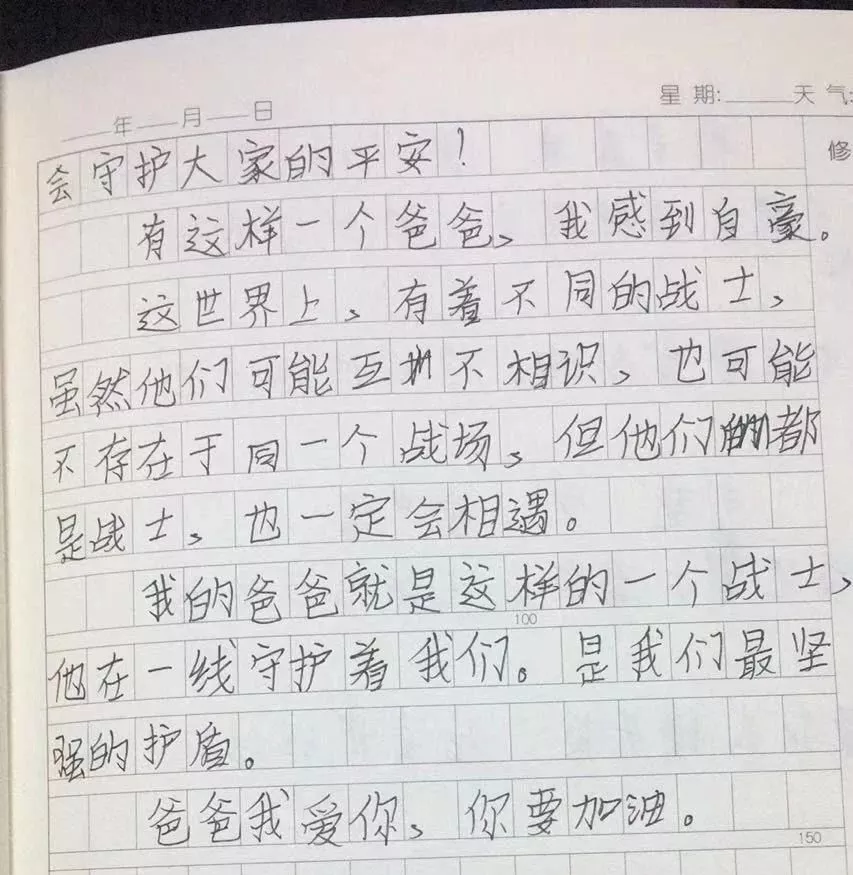 星期:____天气:
____年____月____日
修
会守护大家的平安!
有这样一个爸爸,我感到自豪。
这世界上,有着不同的战士,
虽然他们可能互不相识,也可能
不存在于同一个战场,但他们都
是战士,也一定会相遇。
我的爸爸就是这样的一个战士,
100
他在一线守护着我们。是我们最坚
强的护盾。
爸爸我爱你,你要加油。
150